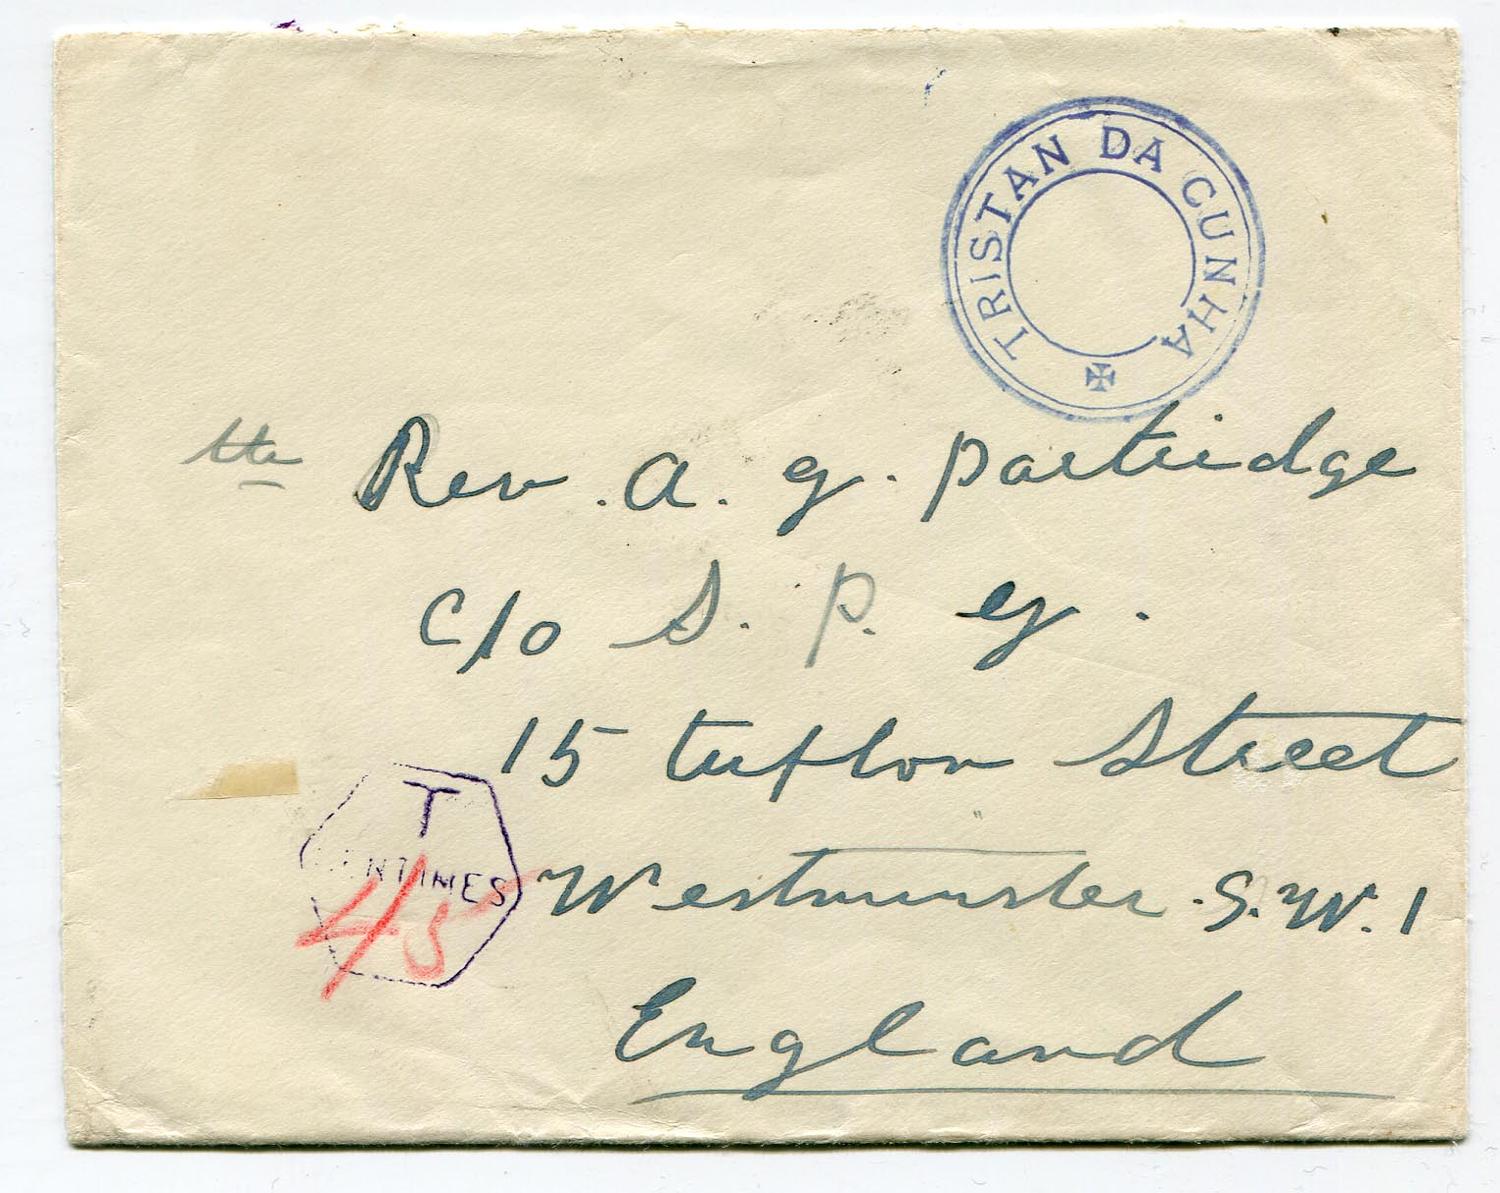 TRISTAN DA CUNHA
the Rev. A. G. Partridge
c/o S. P. G.
15 Tufton Street
Westminster. S.W.1
England
T
CENTIMES
45